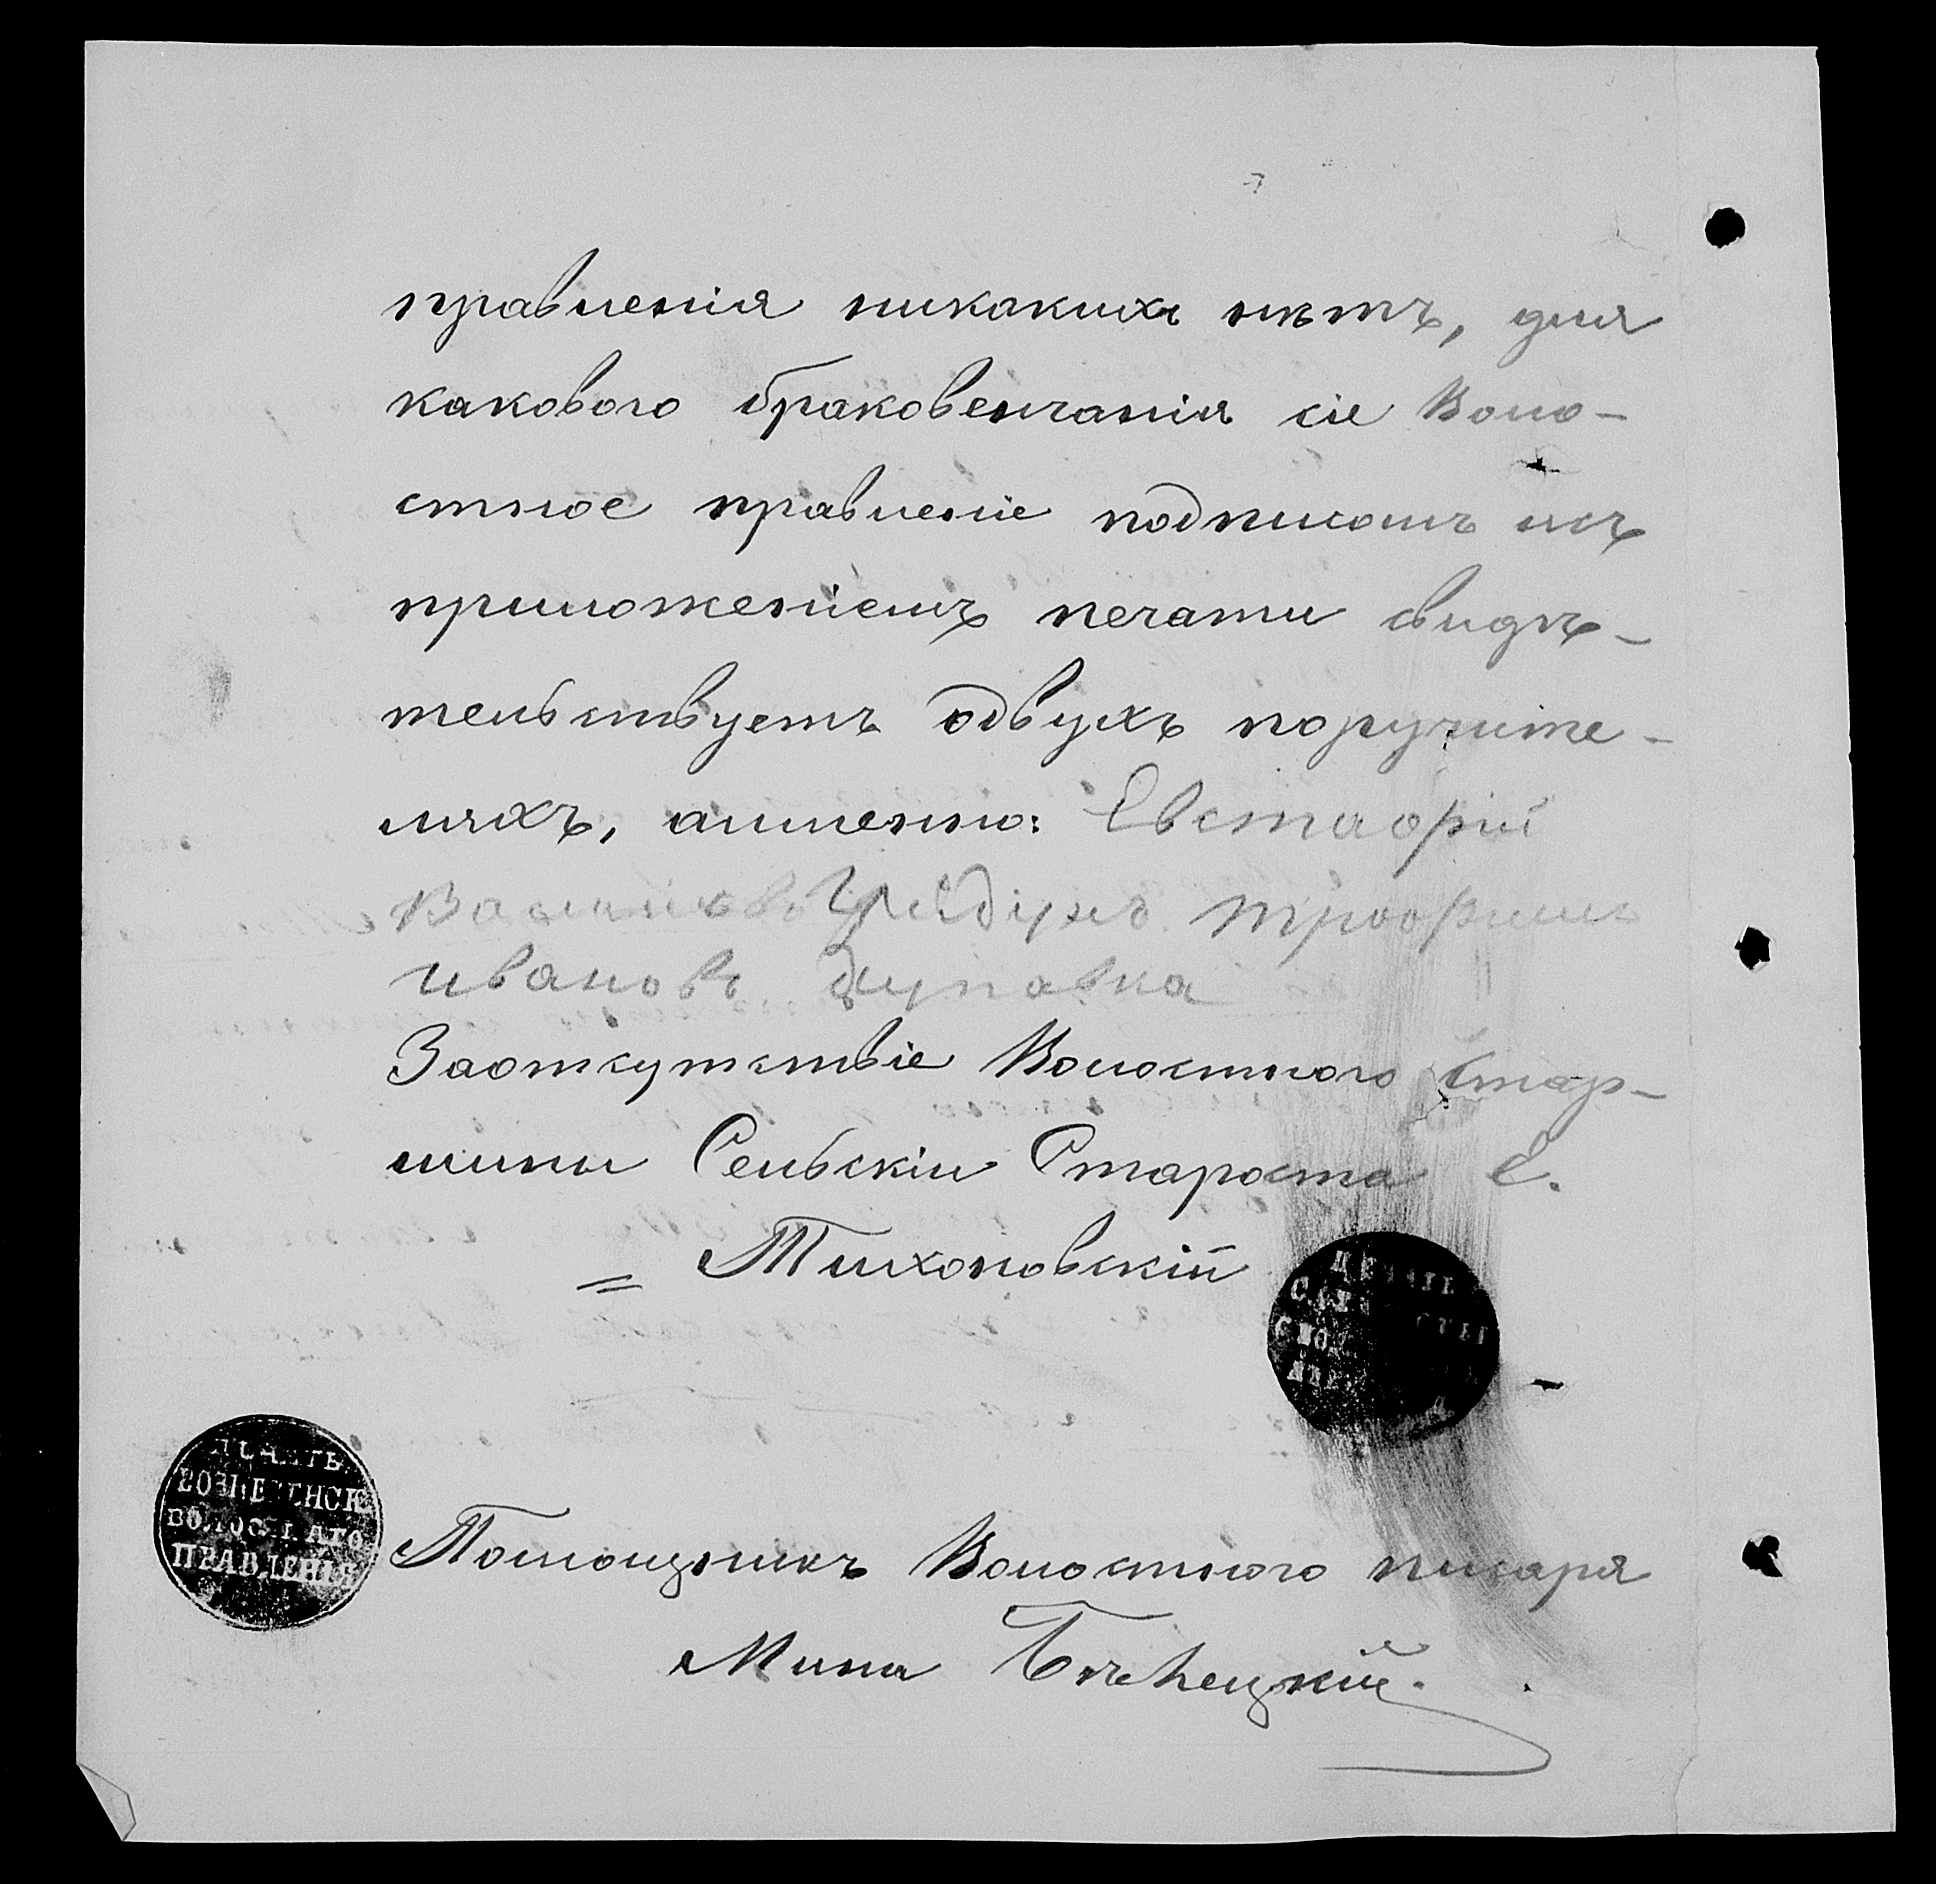 правленія никакихъ нѣтъ, для
каковаго браковенчанія сіе Воло-
стное правленіе подписомъ исъ
приложеніемъ печати свидѣ-
тельствуетъ одвухъ поручите-
ляхъ, аименно: Евстафій
Трофимъ
ивановъ
Заоткутствіе Волостного Стар-
шины Сельскіи Староста Е.
Тихоновскій
ПЕЧАТЬ
ВОЗНЕСЕНСК
ВОЛОСТНАГО
ПРАВЛЕНІЯ
Помощникъ Волостного писаря
Мина